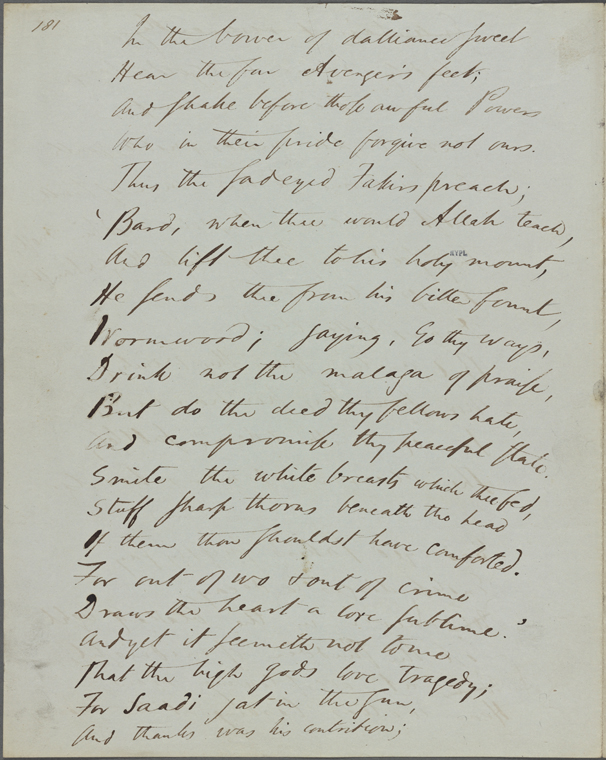 181
In the bower of dalliance sweet
Hear the far Avenger's feet;
And shake before those awful Powers
Who in their pride forgive not ours.
Thus the sadeyed Fakirs preach;
'Bard, when thee would Allah teach,
And lift thee to his holy mount,
NYPL
He sends thee from his bitter fount,
Wormwood; saying, Go thy ways,
Drink not the malaga of praise,
But do the deed thy fellows hate,
And compromise thy peaceful state.
Smite the white breasts which thee fed,
Stuff sharp thorns beneath the head
Of them thou shouldst have comforted.
For out of wo & out of crime
Draws the heart a lore sublime.'
And yet it seemeth not to me
That the high gods love tragedy;
For Saadi sat in the sun,
And thanks was his contrition;